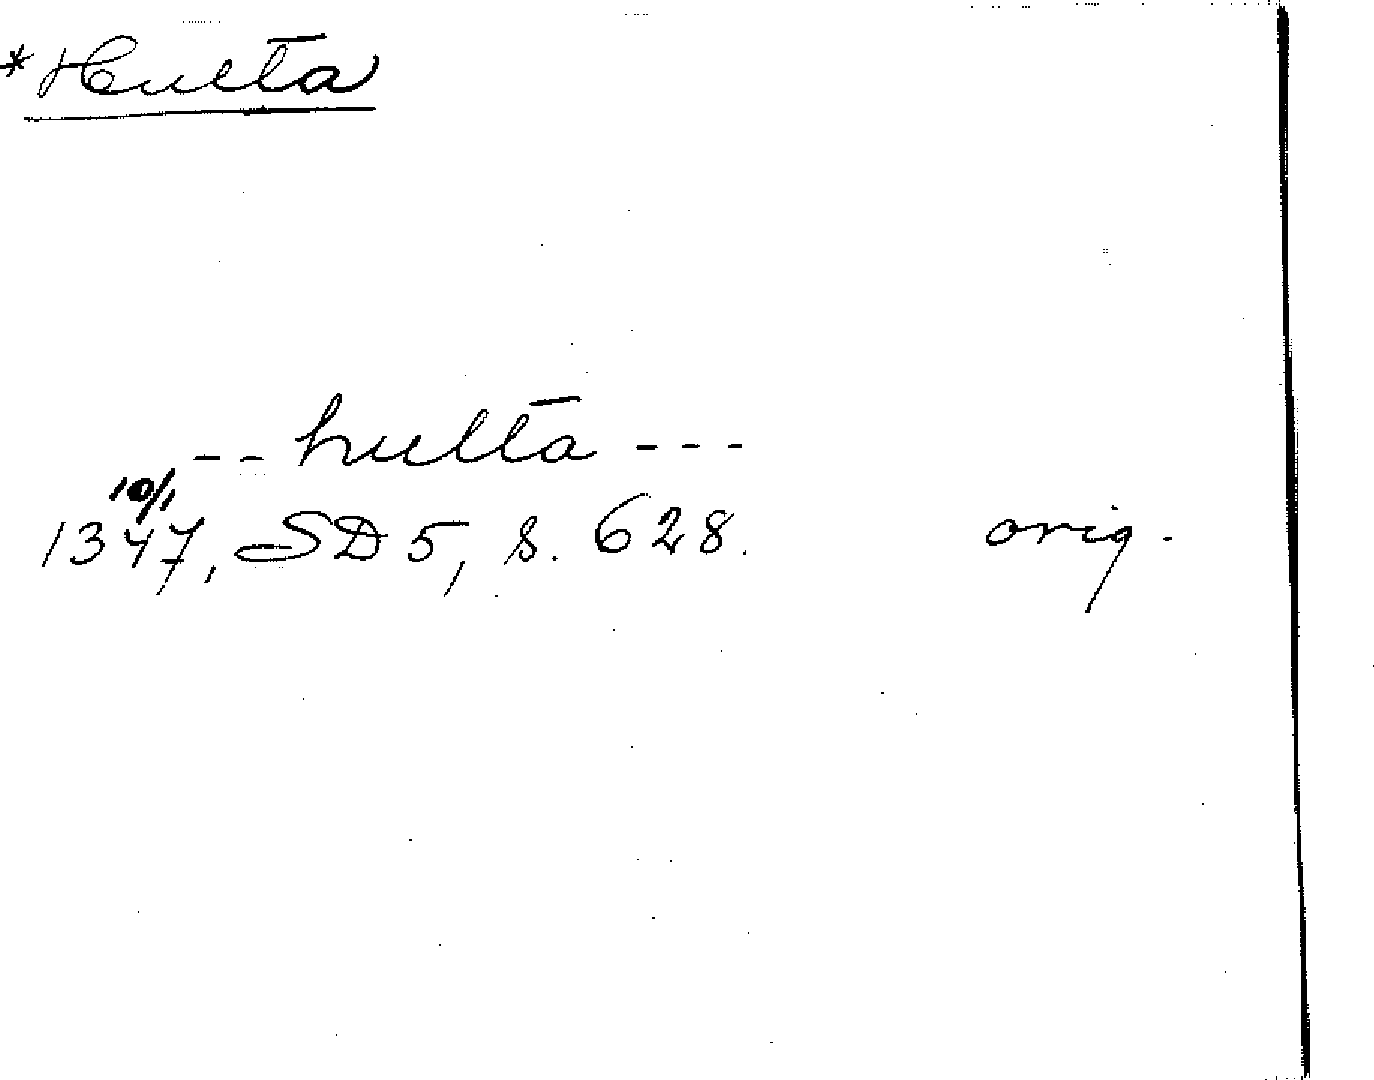 *Hulta
-- hulta ---
10/1
1347, SD 5, s. 628. orig.